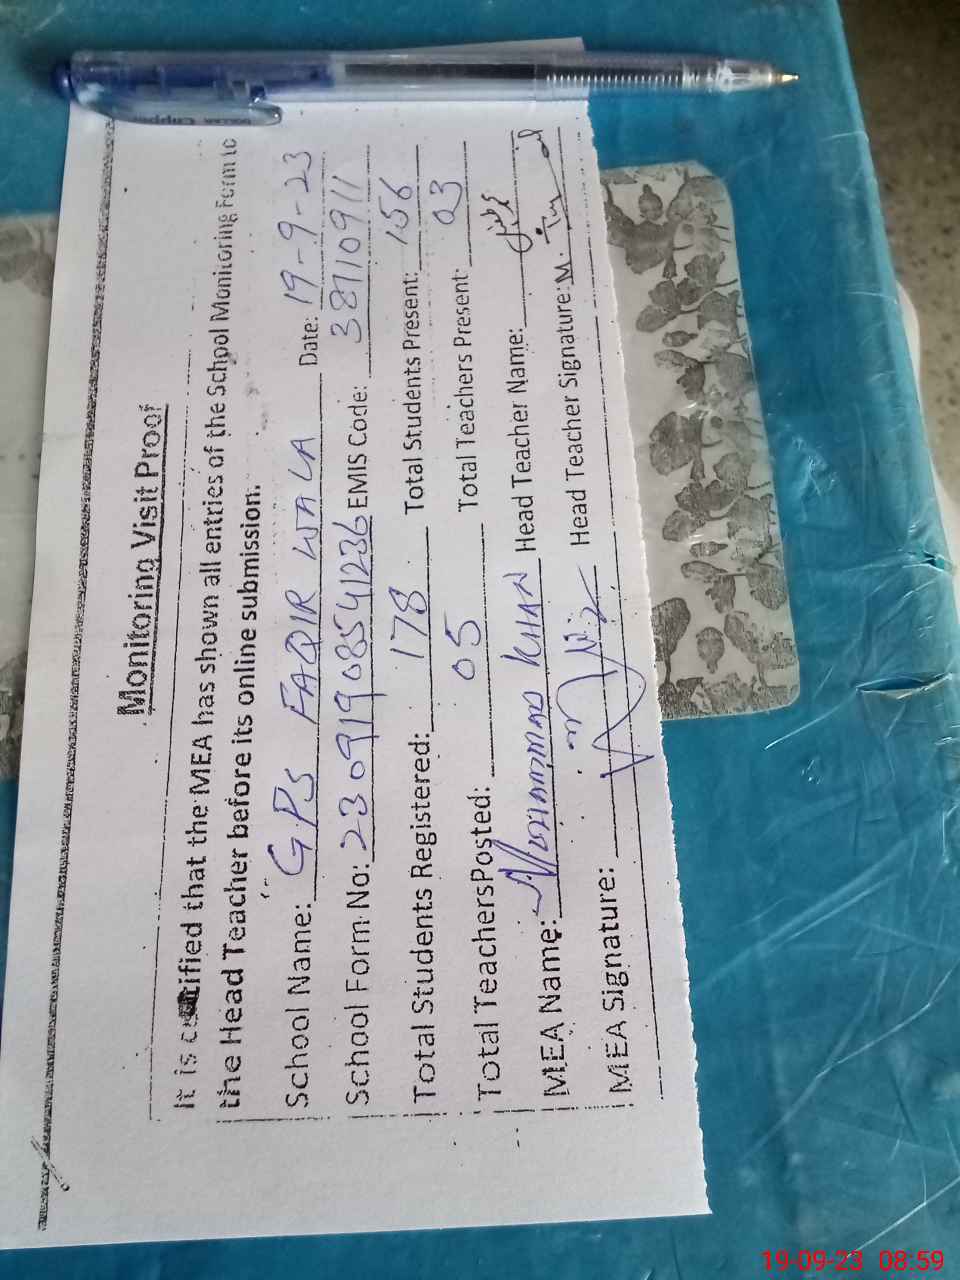 Monitoring Visit Proof
It is certified that the MEA has shown all entries of the School Monitoring Form to
the Head Teacher before its online submission.
School Name: GPS FAQIR WALA Date: 19-9-23
School Form No: 230919085541236 EMIS Code: 38110911
Total Students Registered: 178 Total Students Present: 156
Total TeachersPosted: 05 Total Teachers Present: 03
MEA Name: Muhammad KHAN Head Teacher Name:
MEA Signature: Head Teacher Signature: M.
19-09-23 08:59